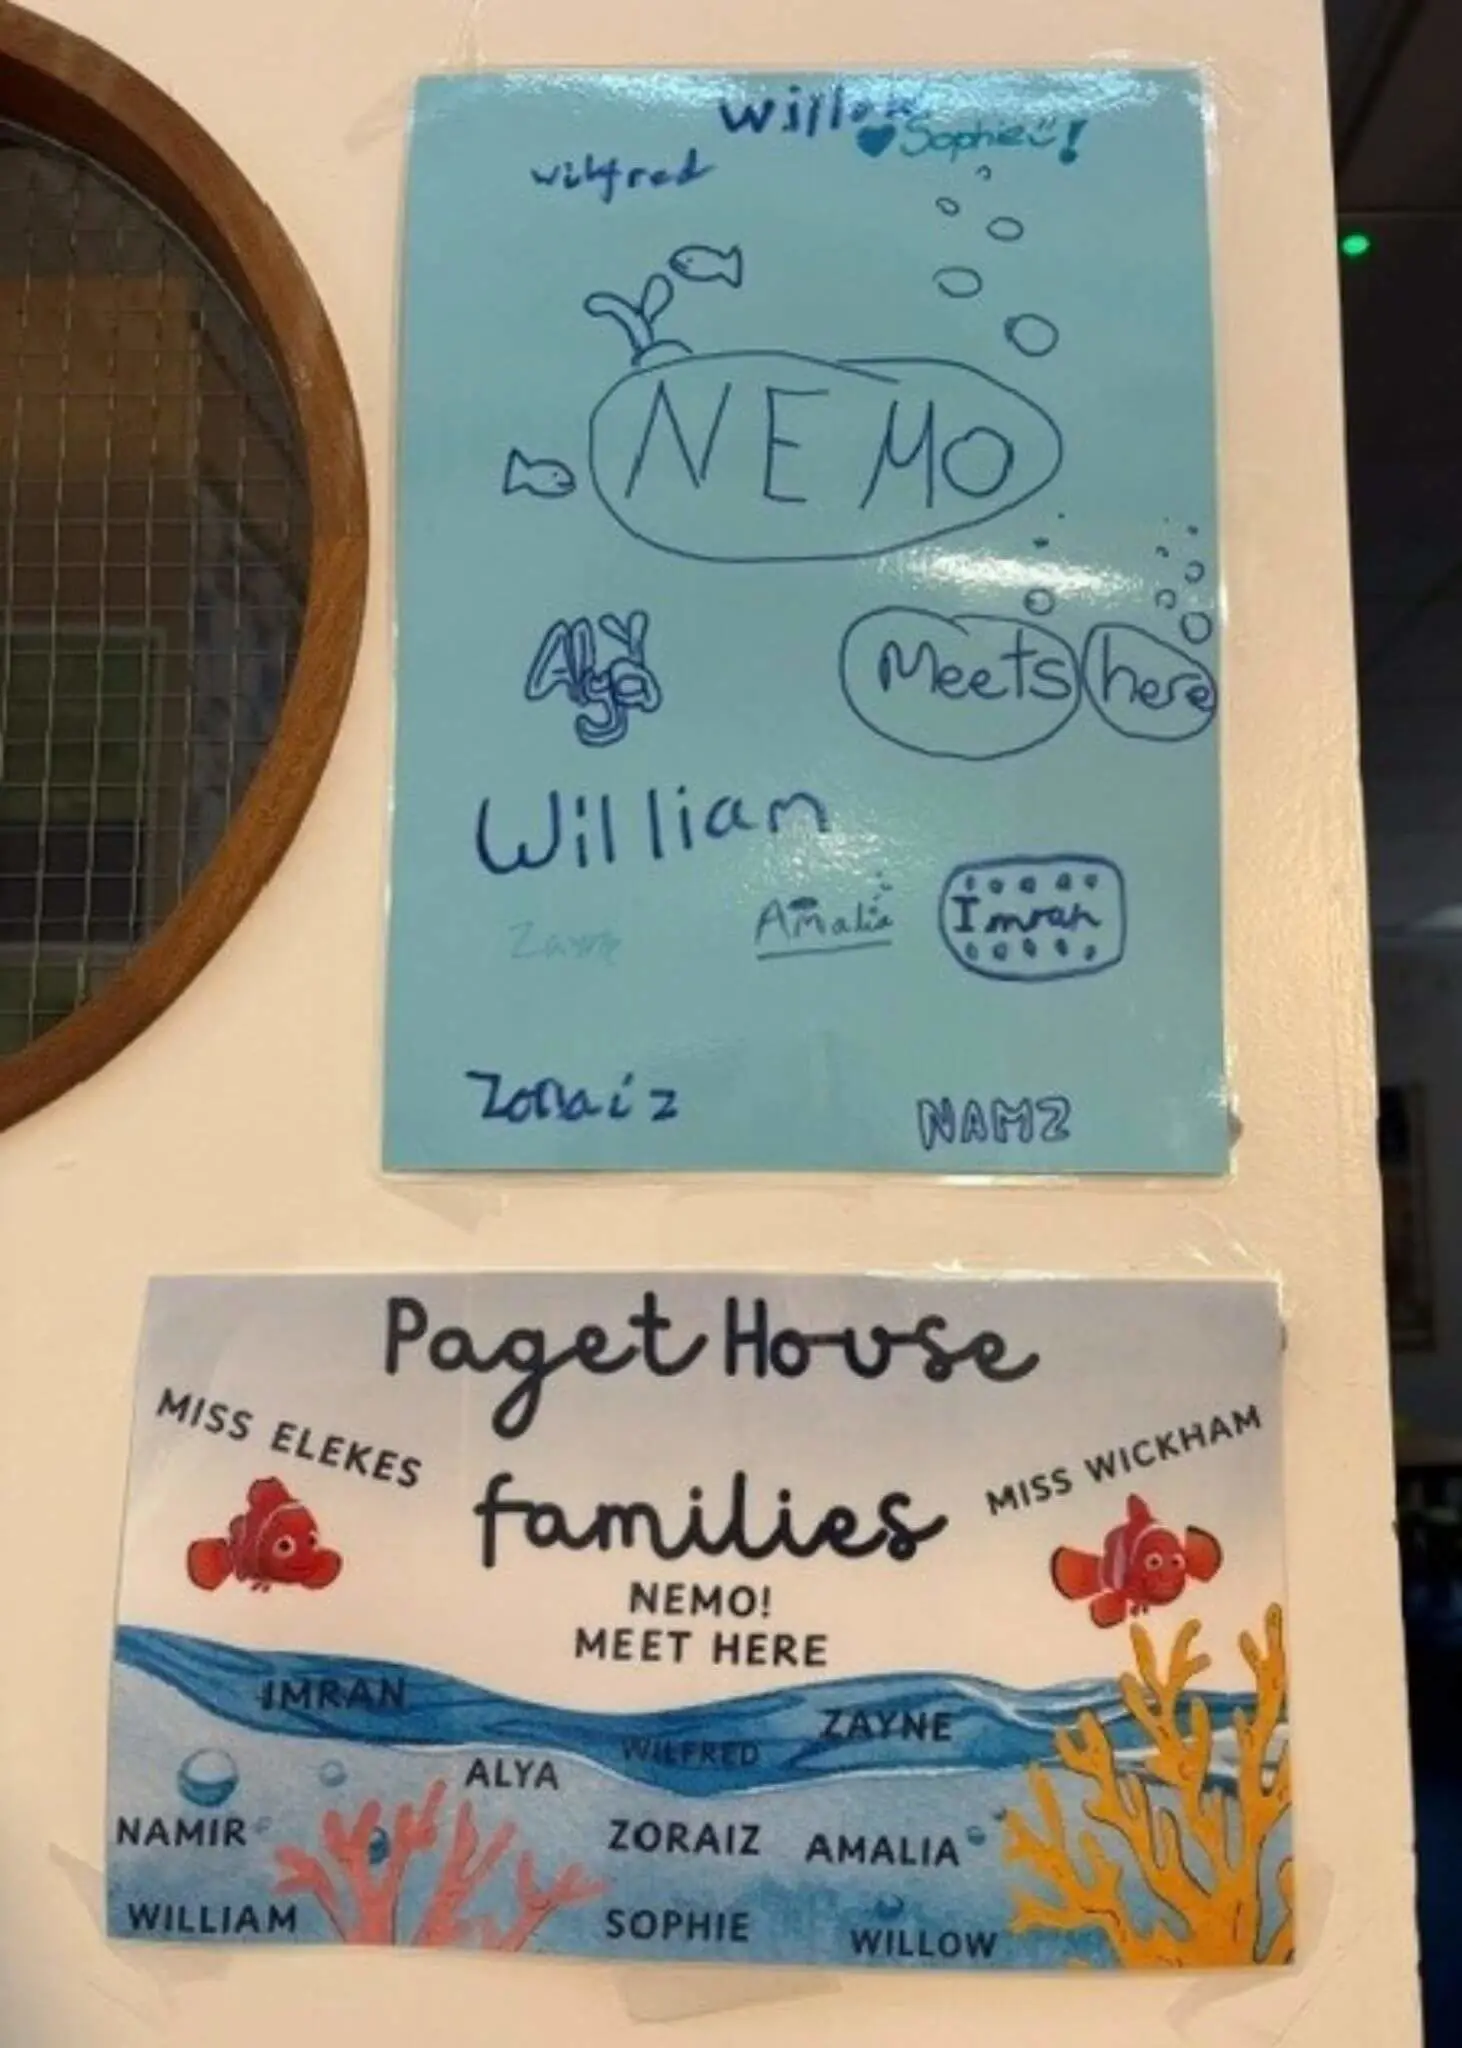 Willow
♥Sophie!
wilfred
NEMO
Alya
Meets here
William
Amalia
Imran
Zoraiz
NAMZ
Paget House
families
MISS ELEKES
MISS WICKHAM
NEMO!
MEET HERE
IMRAN
ZAYNE
WILFRED
ALYA
NAMIR
ZORAIZ
AMALIA
WILLIAM
SOPHIE
WILLOW